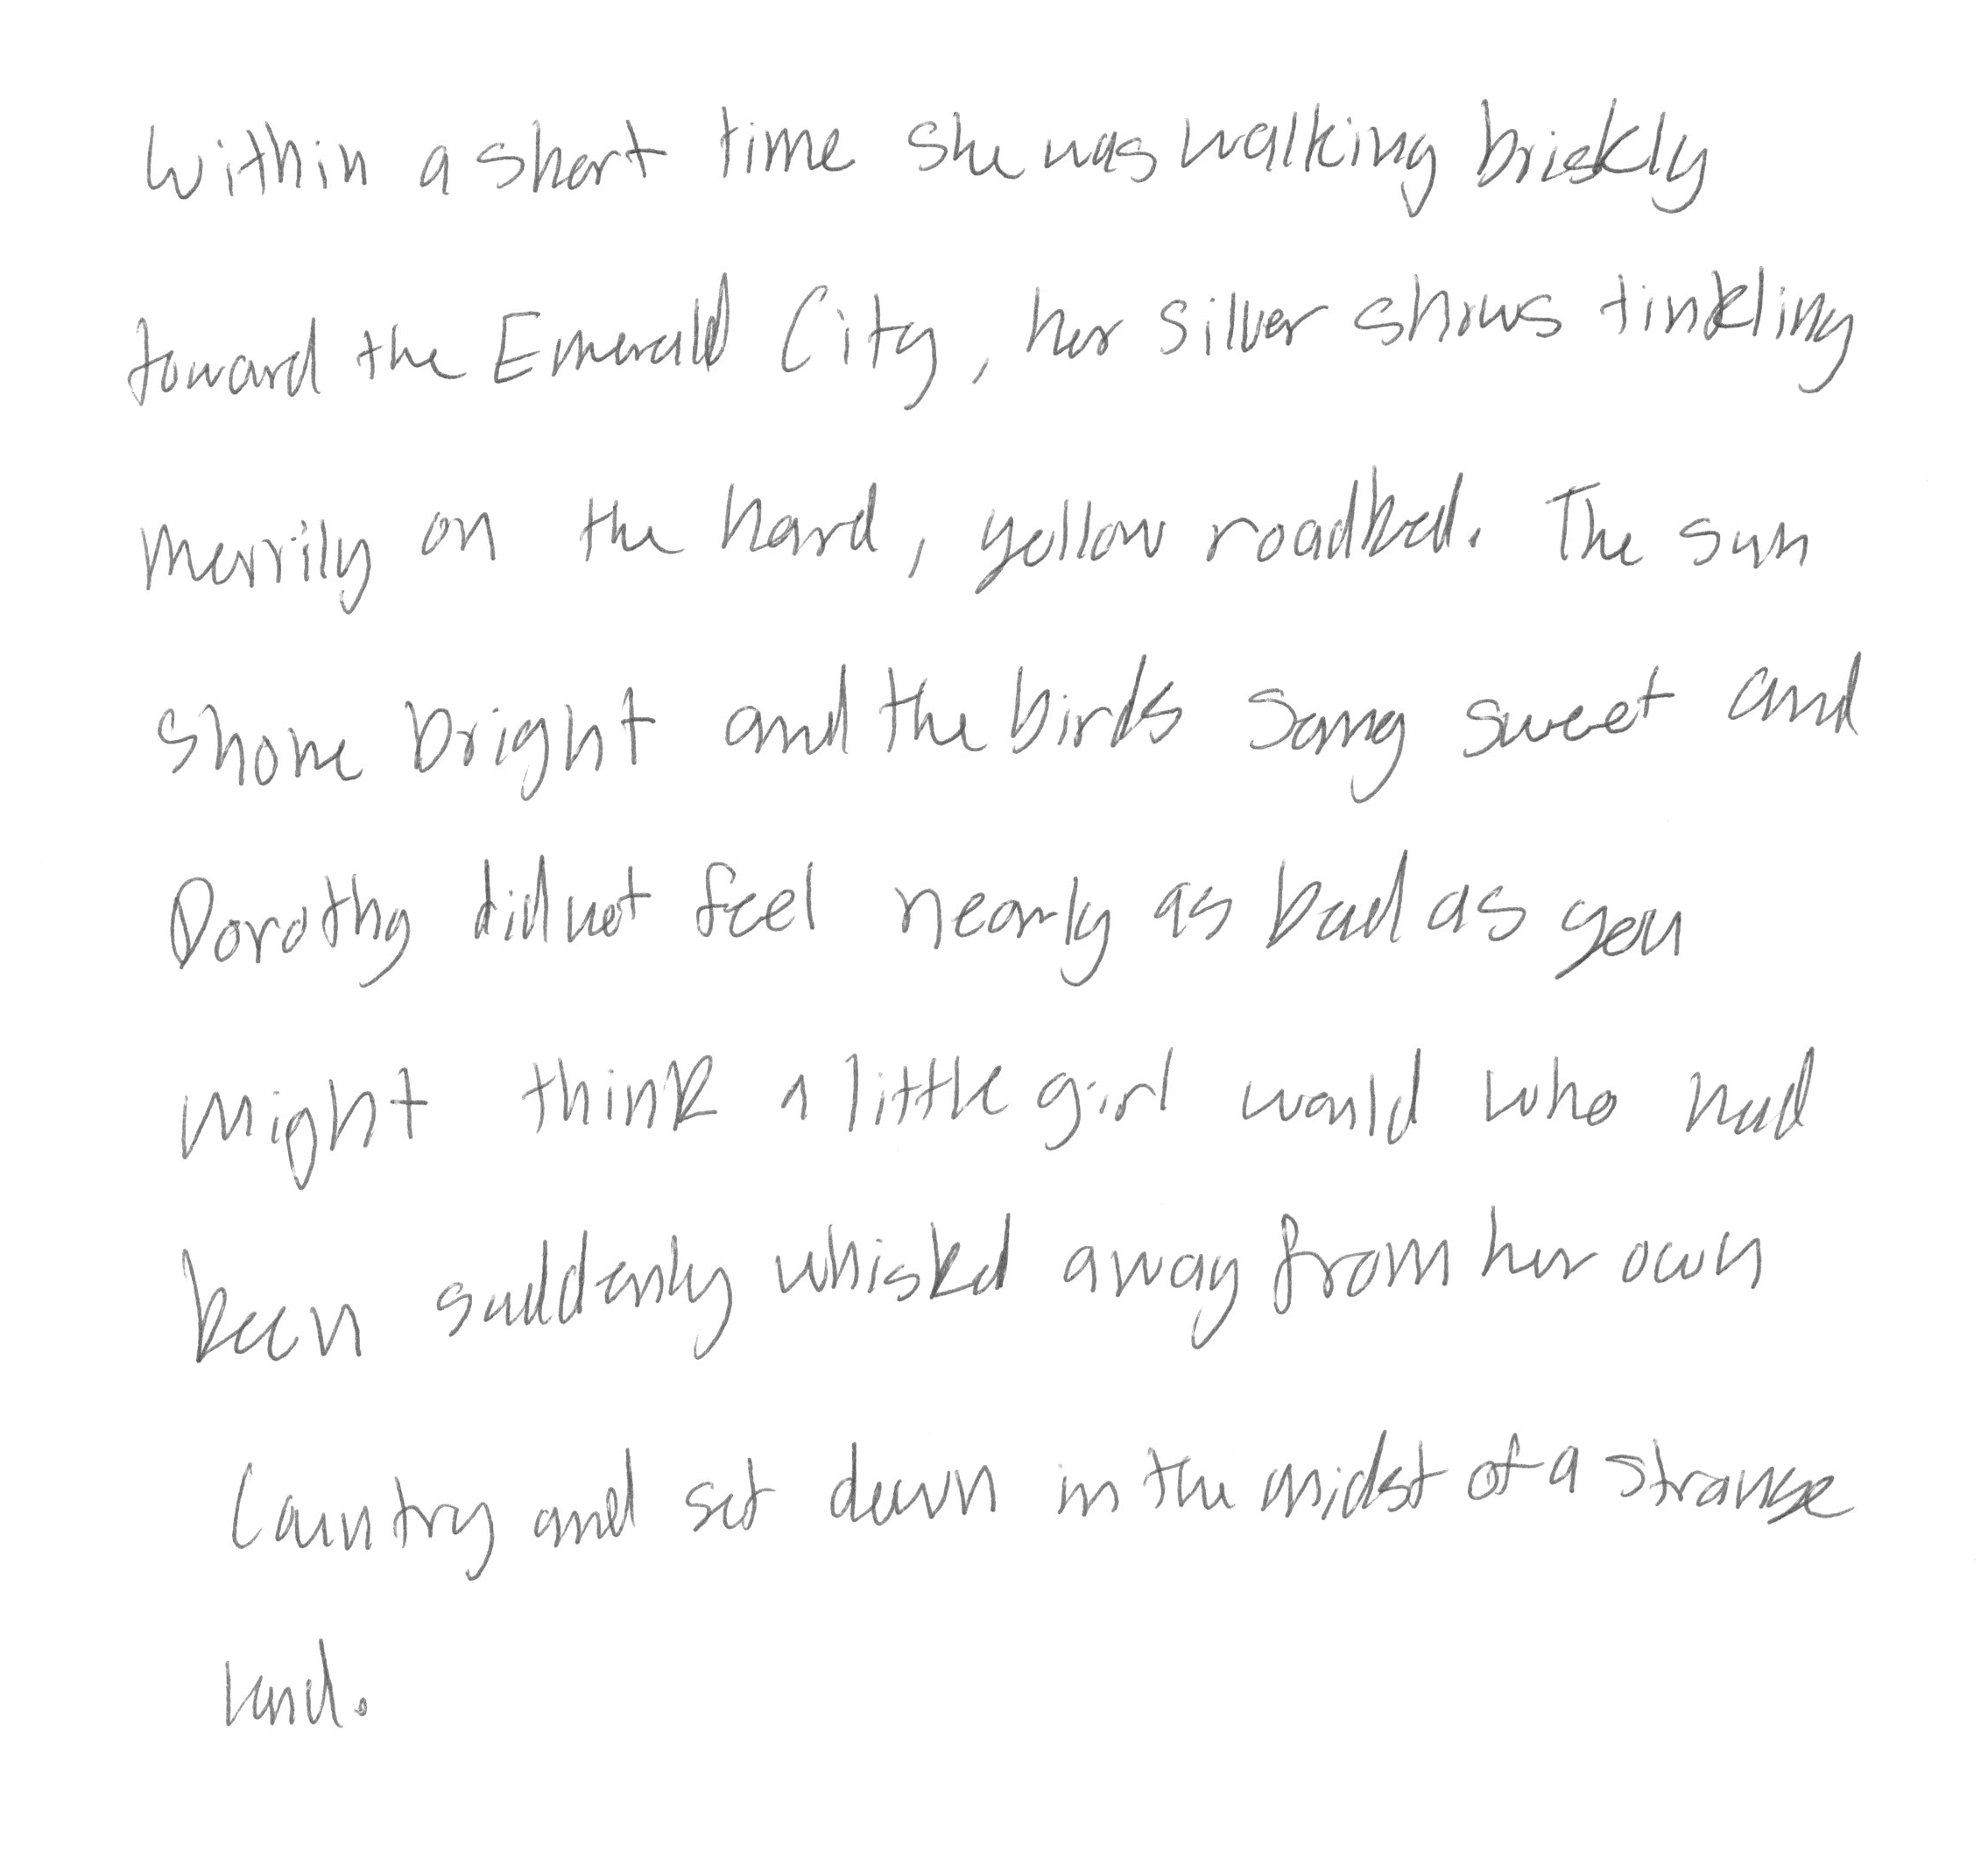 Within a short time she was walking briskly
toward the Emerald City, her silver shoes tinkling
merrily on the hard, yellow roadbed. The sun
shone bright and the birds sang sweet and
Dorothy did not feel nearly as bad as you
might think a little girl would who had
been suddenly whisked away from her own
Country and set down in the midst of a strange
land.